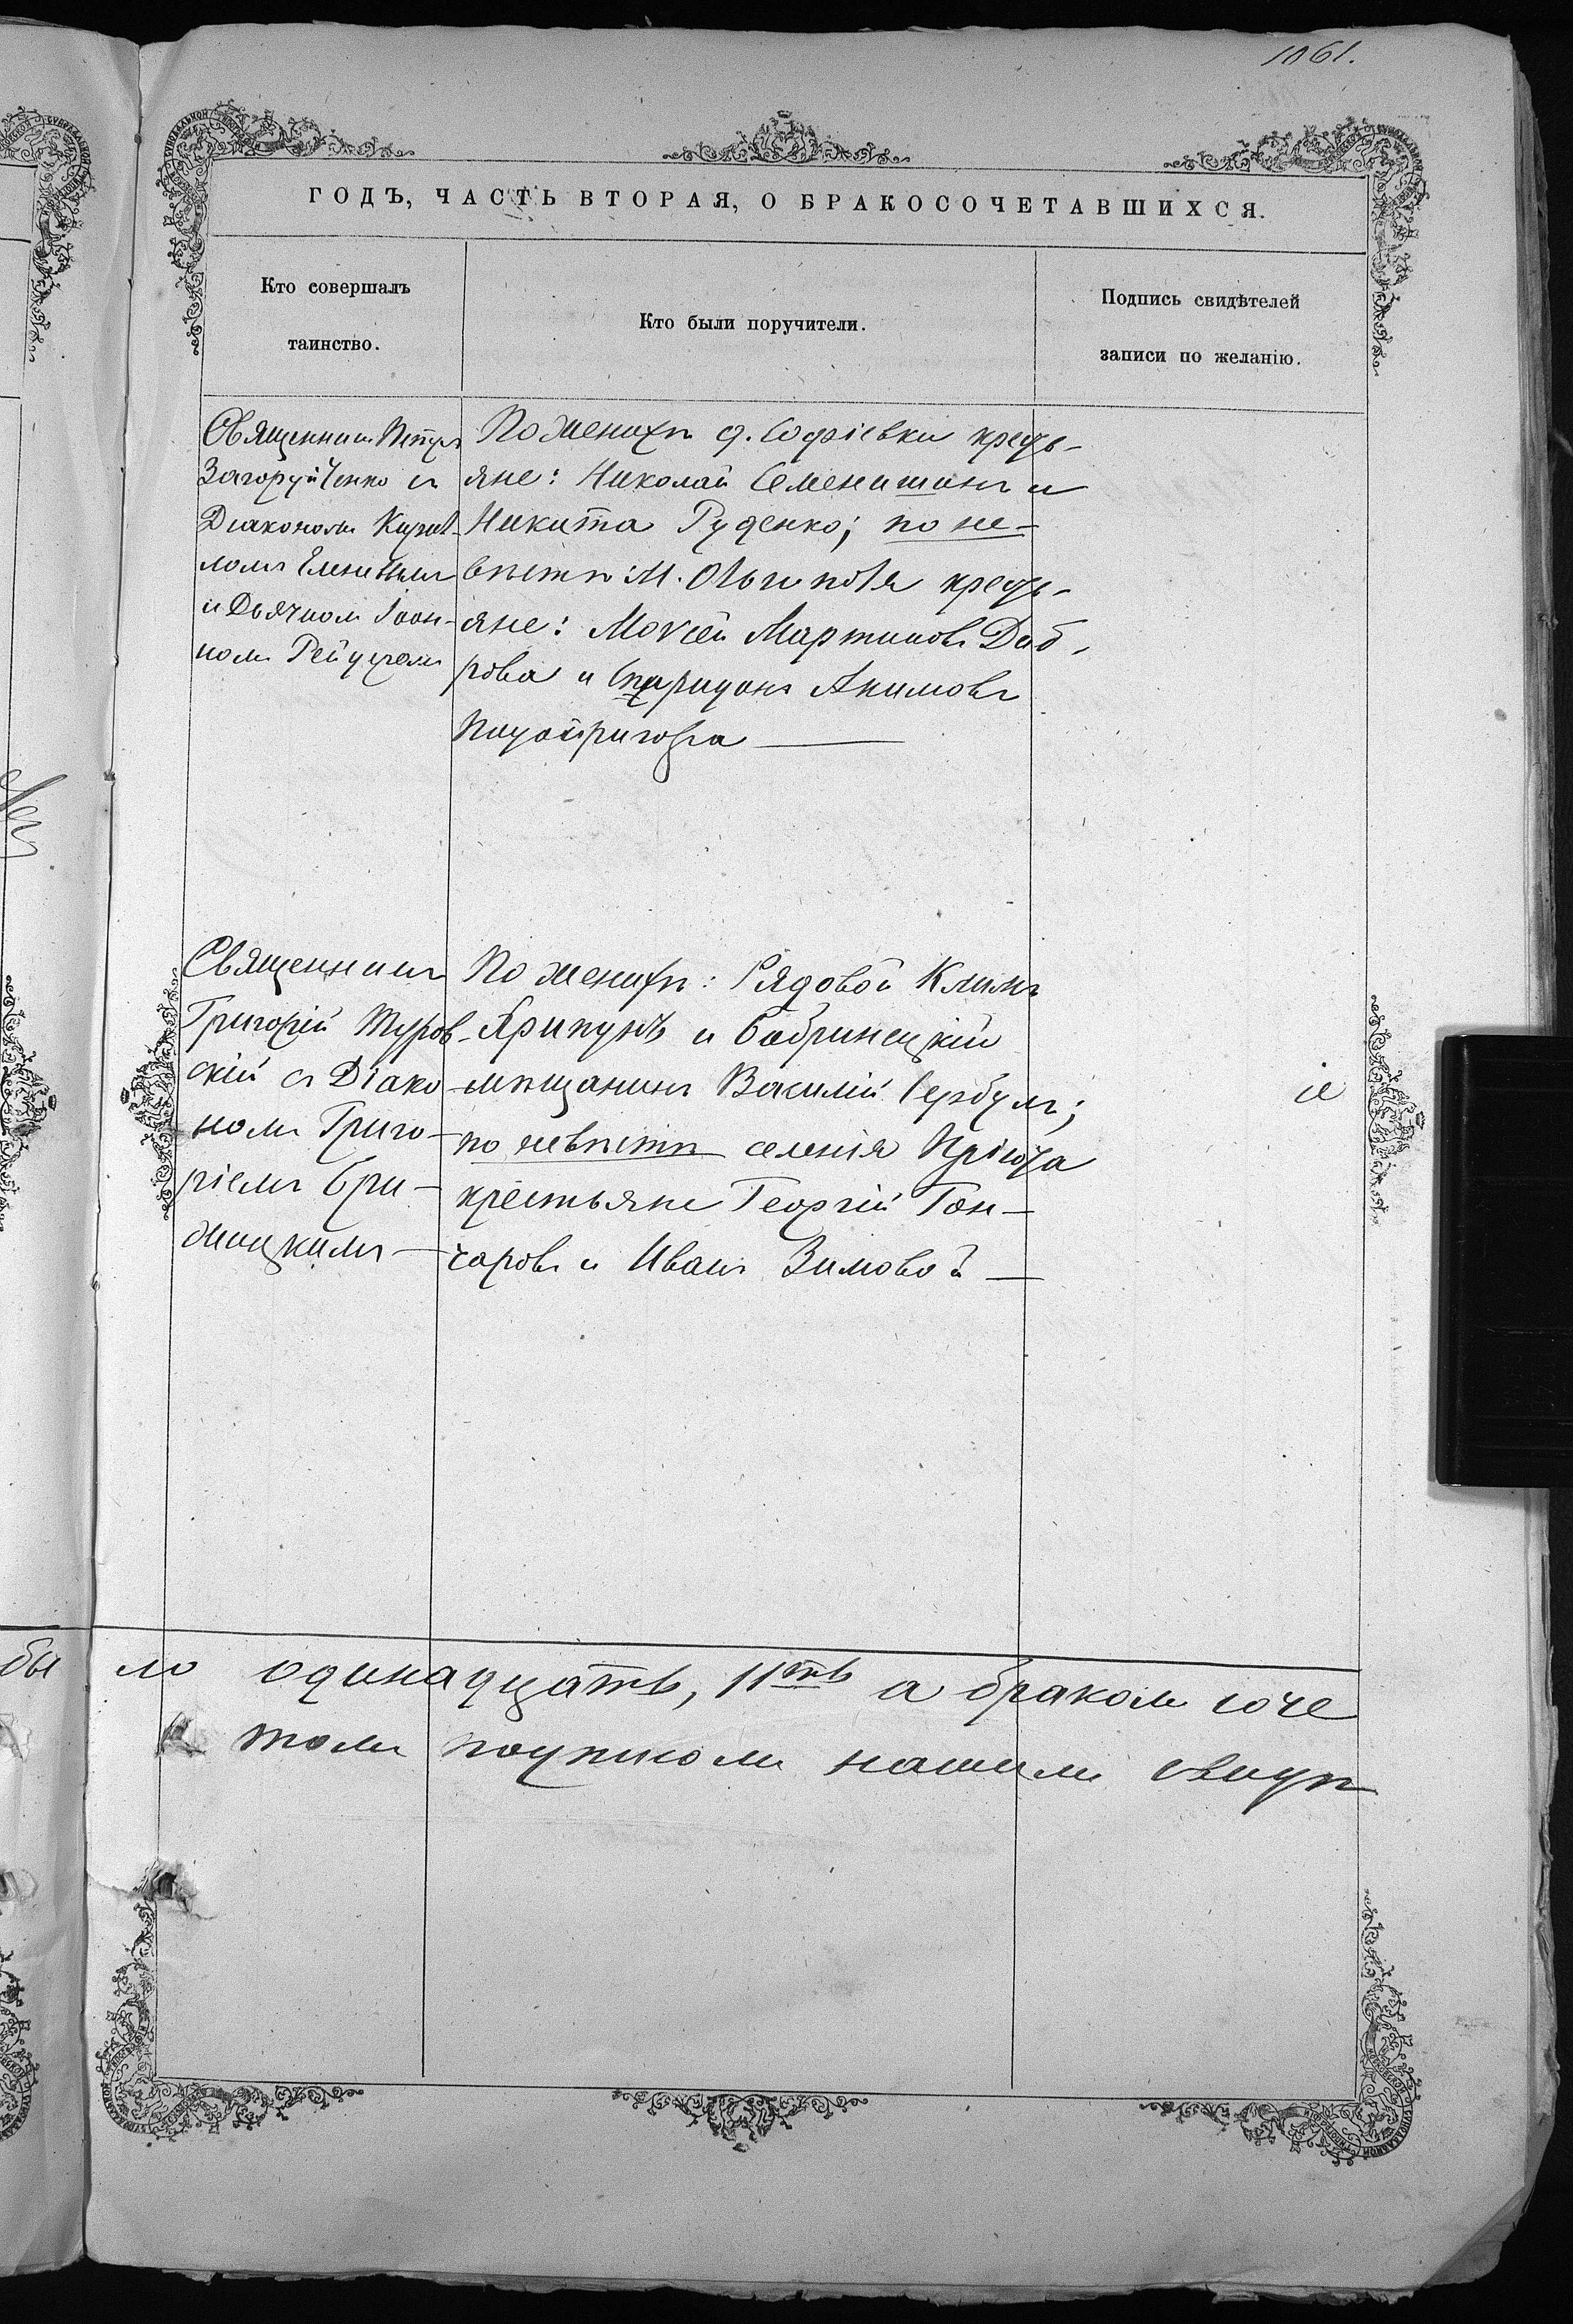 1061.
ГОДЪ, ЧАСТЬ ВТОРАЯ, О БРАКОСОЧЕТАВШИХСЯ.
Кто совершалъ
таинство.
Кто были поручители.
Подпись свидѣтелей
записи по желанію.
Священникъ Петръ
Загоруйченко съ
Діакономъ Кирил-
ломъ
и Дьячкомъ Іоан-
номъ
По женихѣ д. Софіевки кресь-
яне: Николай Семенишинъ и
Никита Руденко; по не-
вѣстѣ: М. кресь-
яне: Моисей Мартиновъ Доб-
рова и Спиридонъ Акимовъ
Священникъ
Григорій Туров-
скій съ Діако-
номъ Григо-
ріемъ Бри-
жицкимъ
По женихѣ: Рядовой Климъ
Ярипунъ и Бобринецкій
мѣщанинъ Василій Сербулъ;
по невѣстѣ селенія
крестьяне Георгій Гон-
чаровъ и Иванъ Зимовой
іе
бы ло одинадцать, 11ть а бракомъ соче
томъ подписомъ нашимъ свидѣ